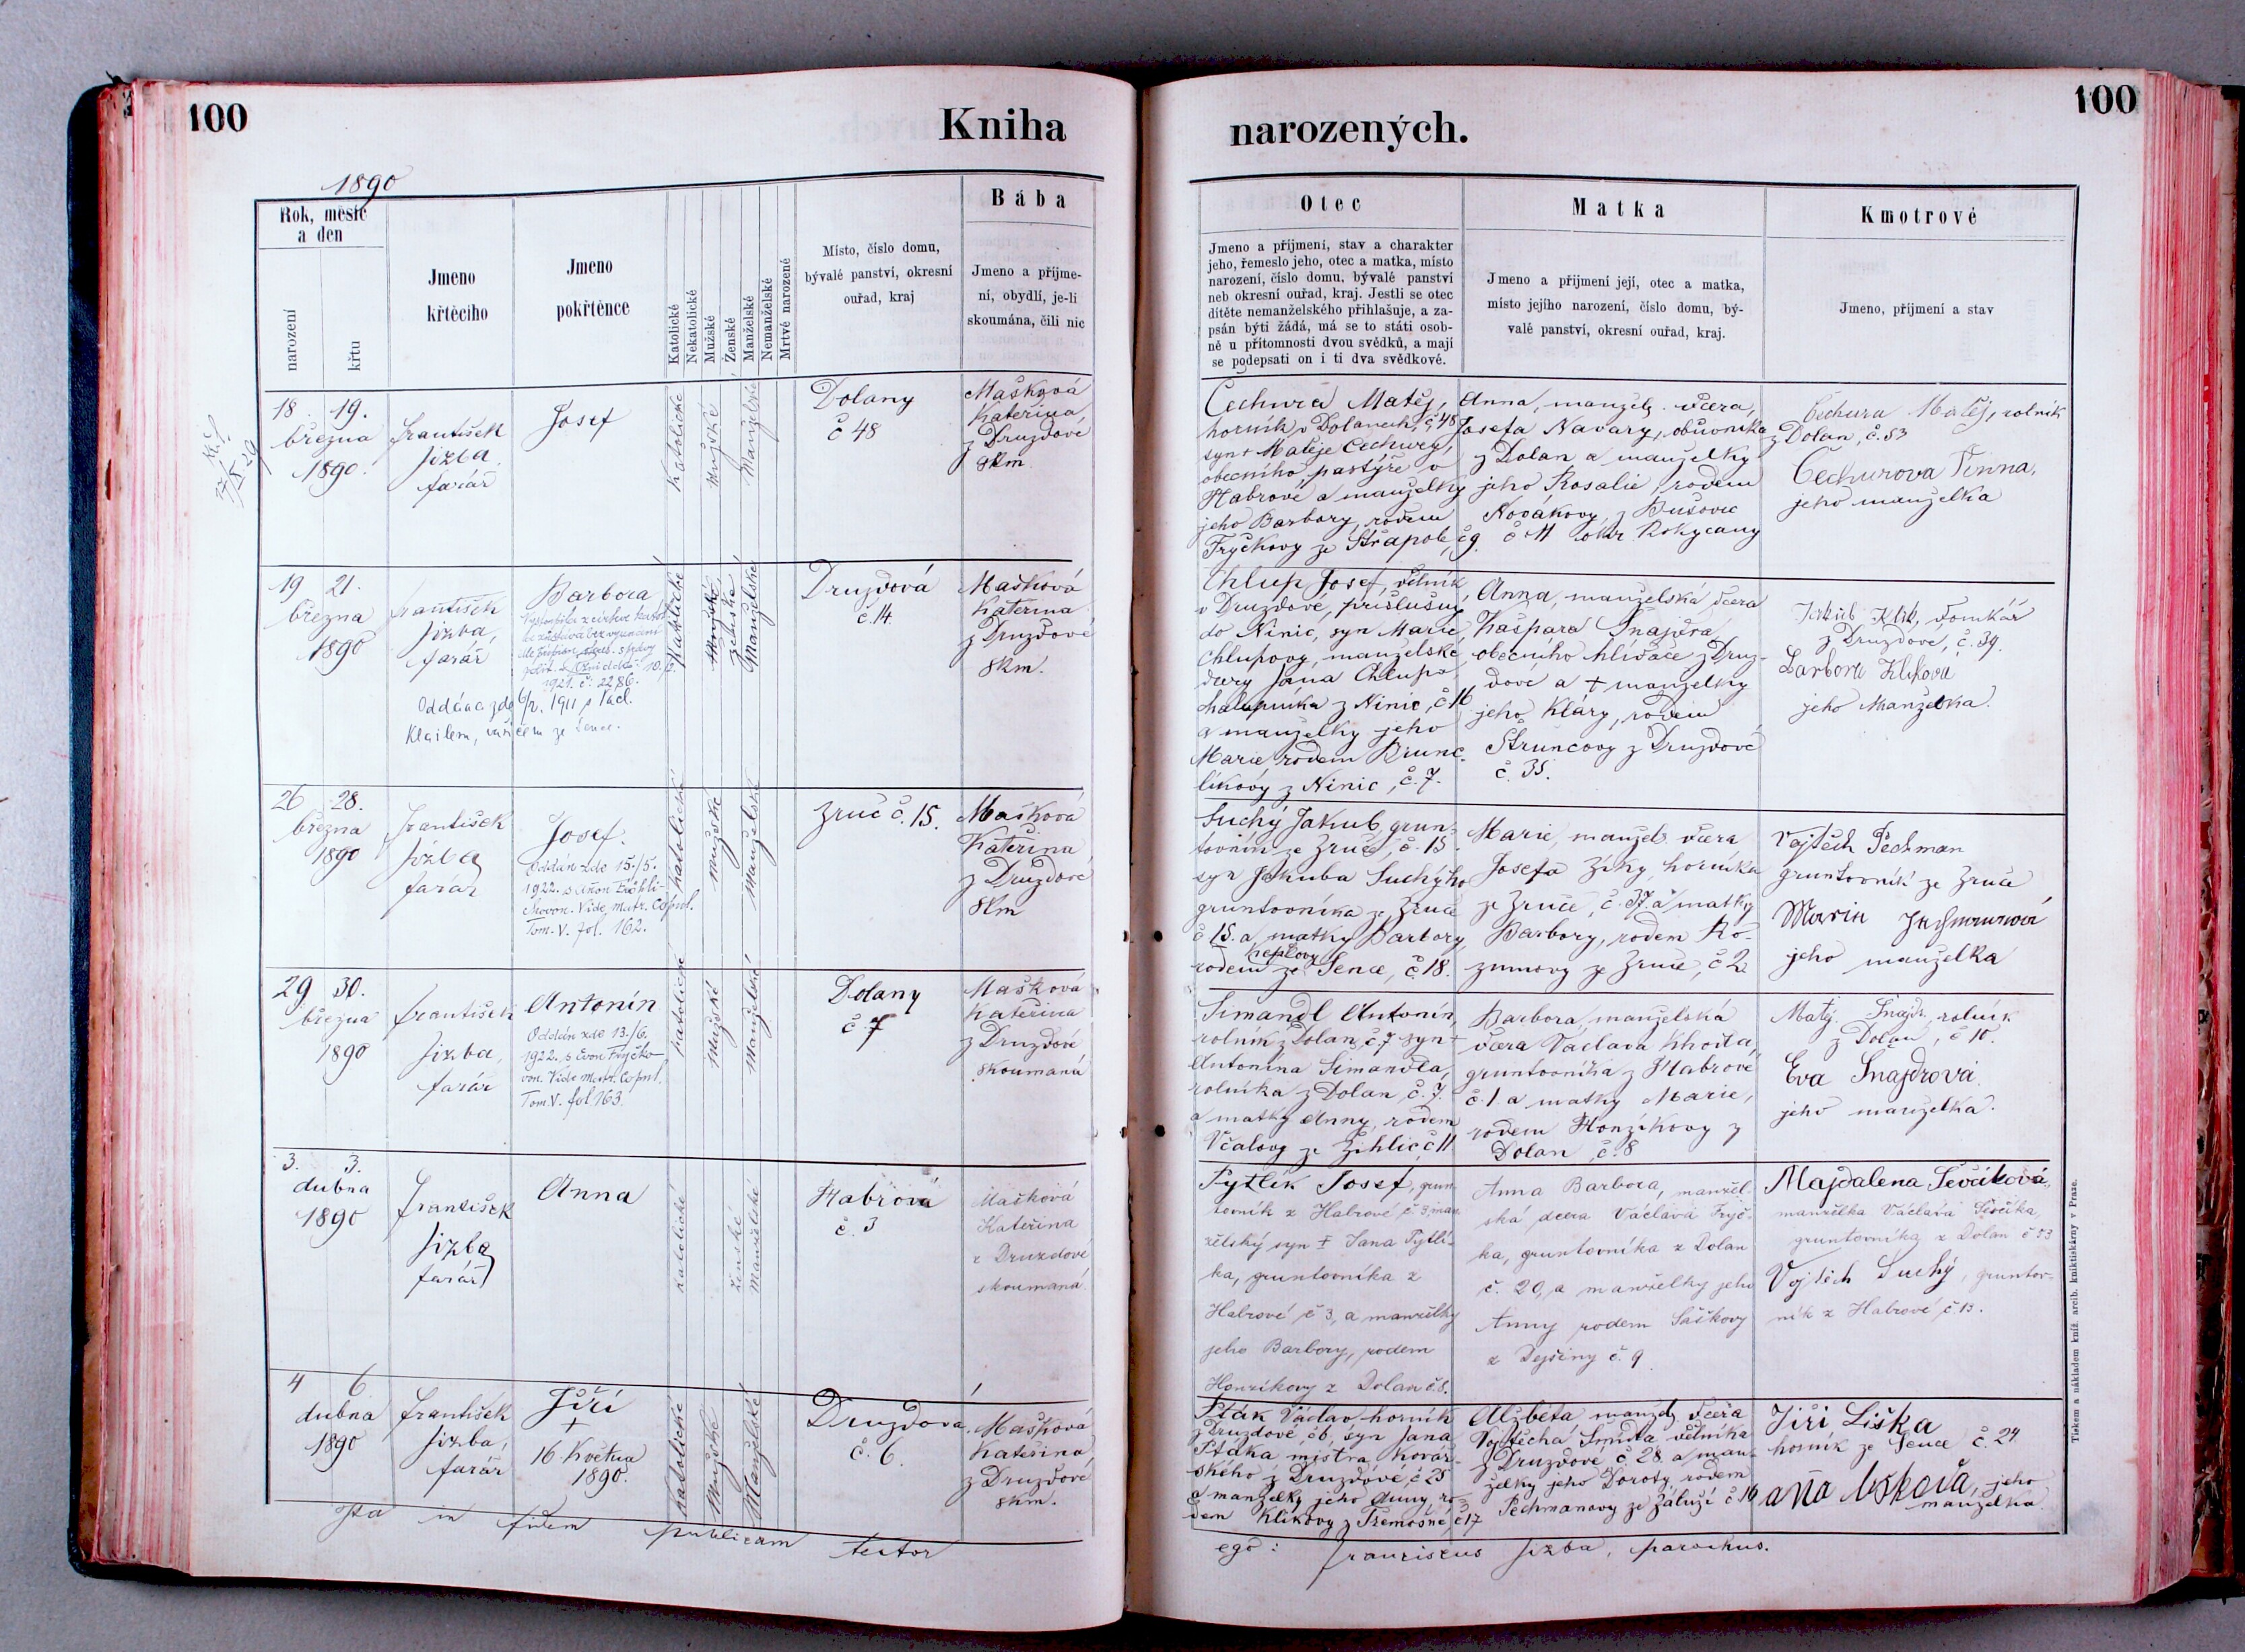 100
Kniha
narozených.
100
1890
Rok, měsíc
a den
narození
křtu
Jmeno
křtěcího
Jmeno
pokřtěnce
Katolické
Nekatolické
Mužské
Ženské
Manželské
Nemanželské
Mrtvě narozené
Místo, číslo domu,
bývalé panství, okresní
ouřad, kraj
Bába
Jmeno a příjme-
ní, obydlí, je-li
skoumána, čili nic
Otec
Jmeno a příjmení, stav a charakter
jeho, řemeslo jeho, otec a matka, místo
narození, číslo domu, bývalé panství
neb okresní ouřad, kraj. Jestli se otec
dítěte nemanželského přihlašuje, a za-
psán býti žádá, má se to státi osob-
ně u přítomnosti dvou svědků, a mají
se podepsati on i ti dva svědkové.
Matka
Jmeno a příjmení její, otec a matka,
místo jejího narození, číslo domu, bý-
valé panství, okresní ouřad, kraj.
Kmotrové
Jmeno, příjmení a stav
18. 19.
března
1890.
František
Jizba
farář
Josef
Katolické
Mužské
Manželské
Dolany
č 48
Mašková
Kateřina
z Druzdové
skm.
Čechura Matěj,
horník v Dolanech, č 48
syn † Matěje Čechury,
obecního pastýře v
Habrové a manželky
jeho Barbory, rodem
Fryčkovy ze Střapole, č 9.
Anna, manžels. dcera,
Josefa Navary, obuvníka
z Dolan a manželky
jeho Rosalie, rodem
Novákovy z Bušovic
č 11 okr. Rokycany
Čechura Matěj, rolník
z Dolan, č. 53
Čechurova Anna,
jeho manželka
19 21.
března
1890
František
Jizba,
farář
Barbora
1921. č. 2286.
Oddána zde 6/2. 1911 s Václ.
Klailem,
Katolické
Mužské
ženské
Manželské
Druzdová
č. 14.
Mašková
Kateřina
z Druzdové
skm.
Chlup Josef, dělník
v Druzdové, příslušný
do Ninic, syn Marie
Chlupovy, manželské
dcery Jana Chlupa
chalupníka z Ninic, č 16
a manželky jeho
Marie rodem Brunc-
líkovy z Ninic, č. 7.
Anna, manželská dcera
Kašpara Šnajdra
obecního hlídače z Druz-
dové a † manželky
jeho Kláry, rodem
Struncovy z Druzdové
č. 35.
Jakub Klik, domkář
z Druzdove, č. 39.
Barbora Klikova
jeho Manželka.
26 28.
března
1890
František
Jizba
farář
Josef.
Oddán zde 15./5.
1922. s
Vide matr. Copul.
Tom. V. fol. 162.
katolické
mužské
manželské
Zruč č. 15.
Mašková
Kateřina
z Druzdové
skm
Suchý Jakub, grun-
tovník ze Zruče, č. 15.
syn Jakuba Suchýho
gruntovníka ze Zruče
č 15. a matky Barbory
rodem Keplovy ze Sence, č 18.
Marie, manžels. dcera
Josefa Ziky, horníka
ze Zruče, č. 37. a matky
Barbory, rodem Ro-
zumovy ze Zruče, č 2
Vojtěch Pechman
gruntovník ze Zruče
Maria
jeho manželka
29 30.
března
1890
František
Jizba,
farář
Antonín
Oddán zde 13./6.
1922. s Evou Fryčko-
vou. Vide matr. Copul.
Tom. V. fol. 163.
katolické
Mužské
Manželské
Dolany
č 7
Mašková
Kateřina
z Druzdové
skoumaná
Simandl Antonín,
rolník z Dolan, č. 7 syn †
Antonína Simandla,
rolníka z Dolan, č. 7.
a matky Anny, rodem
Včalovy ze Žihlic, č 11
Barbora, manželská
dcera Vaclava
gruntovníka z Habrové
č. 1 a matky Marie,
rodem Honzíkovy z
Dolan, č. 8
Matěj Šnajdr, rolník
z Dolan, č 10.
Eva Šnajdrová
jeho manželka.
3. 3.
dubna
1890
František
Jizba
farář
Anna
katolické
ženské
manželské
Habrová
č. 3
Mašková
Kateřina
z Druzdové
skoumaná
Pytlík Josef, grun-
tovník z Habrové č 3, man-
želský syn † Jana Pytlí-
ka, gruntovníka z
Habrové č 3, a manželky
jeho Barbory, rodem
Honzíkovy z Dolan č. 8.
Anna Barbora, manžel-
ská dcera Václava Fryč-
ka, gruntovníka z Dolan
č. 20, a manželky jeho
Anny rodem Saškovy
z Dejšiny č. 9
Majdalena Ševčíková,
manželka Václava Ševčíka
gruntovníka z Dolan č 53
Vojtěch Suchý, gruntov-
ník z Habrové č 13.
4 6
dubna
1890
František
Jizba,
farář
Jiří
†
16. Května
1890.
Katolické
Mužské
Manželské
Druzdova
č. 6.
Mašková
Kateřina
z Druzdové
skm.
Pták Václav horník
z Druzdové č 6, syn Jana
Ptáka mistra kovář-
ského z Druzdové, č 25
a manželky jeho Anny, ro-
dem Klikovy z Třemošné č 17
Alžběta, manžels. dcera
Vojtěcha Šmída dělníka
z Druzdové č. 28 a man-
želky jeho Doroty rodem
Pechmanovy ze Záluží č 16
Jiří Liška
horník ze Sence č. 24
jeho
manželka
Ita in fidem publicam testor
ego: Franciscus Jizba, parochus.
Tiskem a nákladem kníž. arcib. knihtiskárny v Praze.